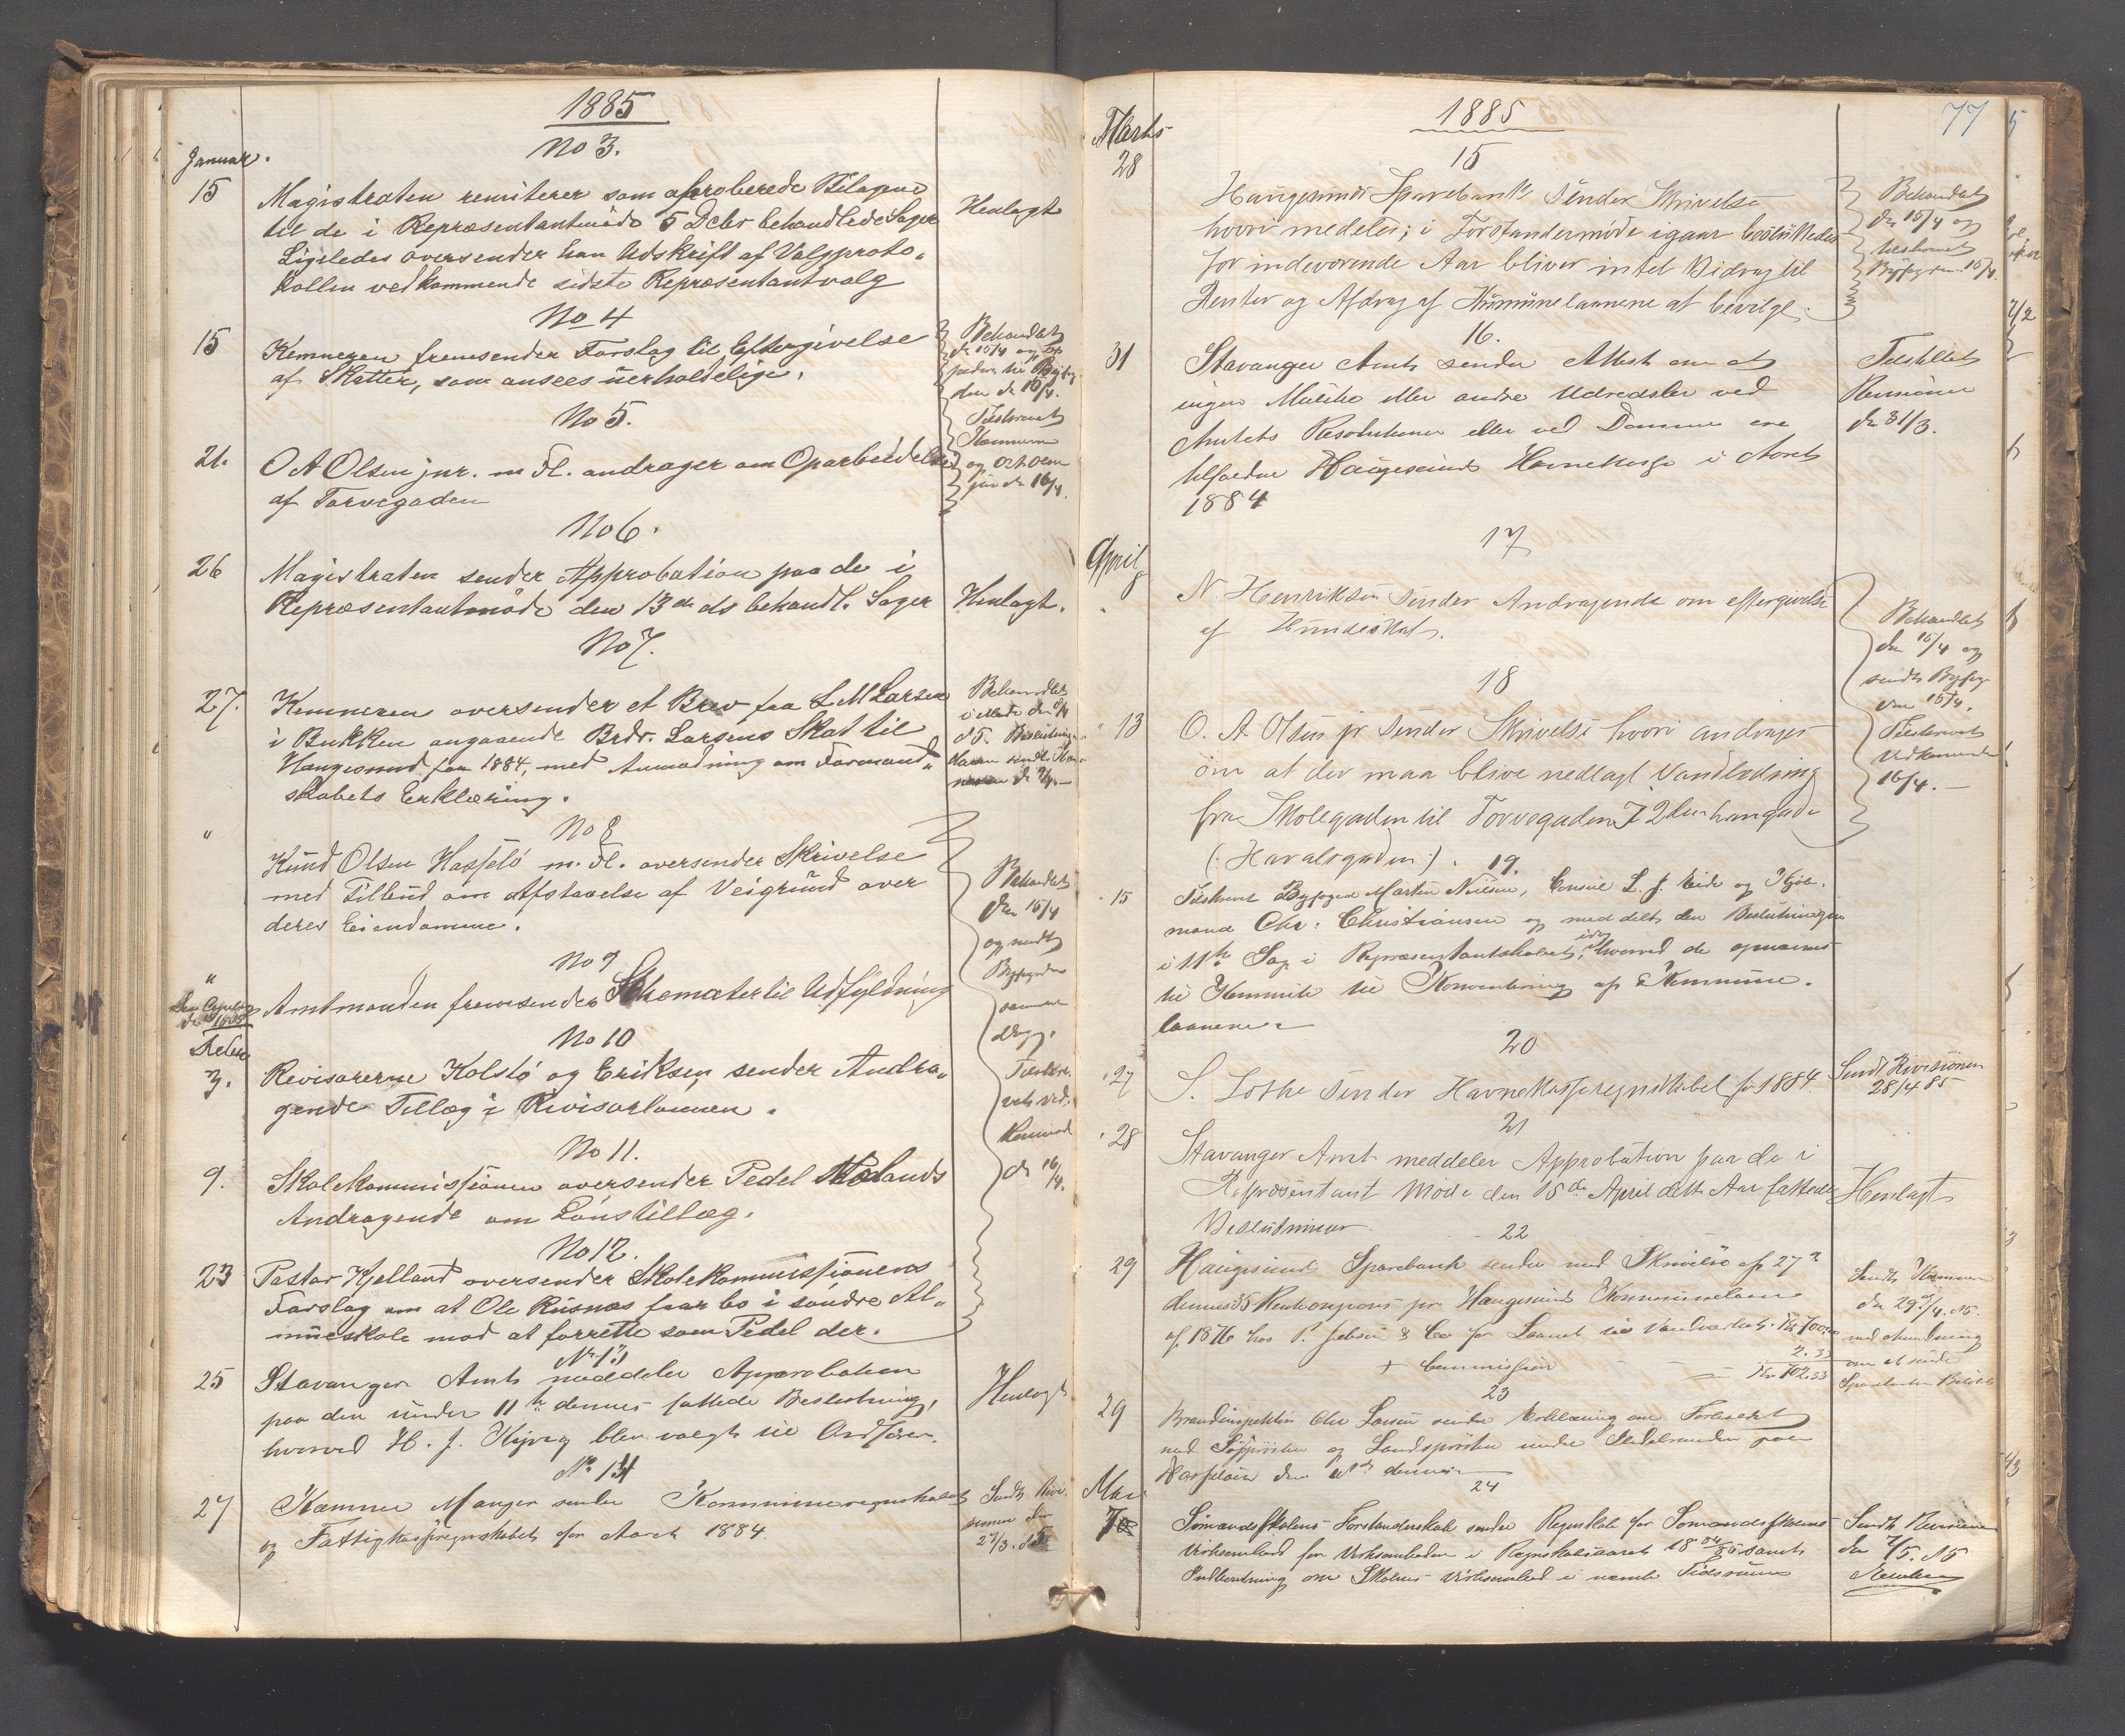 1885
No 3.
Januar.
15 Magistraten remitterer som approberede Bilagene Henlagt
til de i Repræsentantmøde 5 Decbr behandlede Sager
Ligeledes oversender han Udskrift af Valgproto-
kollen vedkommende sidste Repræsentantvalg
No 4
15 Kemneren fremsender Forslag til Eftergivelse Behandlet
af Skatter, som ansees uerholdelige. de 15/4 og
den de 16/4.
No 5. Tilskrevet
Kæmneren
21. O A Olsen jnr. m Fl. andrager om Oparbeidelse og
af Torvegaden de 16/4.
No 6.
26 Magistraten sender Approbation paa de i
Repræsentantmøde den 13de ds behandl. Sager Henlagt.
No 7.
27. Kemneren oversender et Brev fra L M Larsen Behandlet
i Bukken angaaende Brdr. Larsens Skat til i Møde den
Haugesund for 1884, med Anmodning om Formand-
skabets Erklæring.
No 8
" Knud Olsen Hasselø m. Fl. oversender Skrivelse
med Tilbud om Afstaaelse af Veigrund over Behandlet
deres Eiendomme. den 15/4
og sendt
No 9 Byfogden
" Amtmanden fremsender Schemater til Udfyldning samme
Dag.
No 10
Febr
3. Revisorerne Kolstø og Eriksen sender Andra- Tilskre-
gende Tillæg i Revisorlønnen. vet Ved-
No 11.
9. Skolekommissionen oversender Pedel Skelands de 16/4.
Andragende om Lønstillæg.
No 12.
23 Pastor Kjelland oversender Skolekommissionens
Forslag om at Ole Rusnæs faar bo i søndre Al-
mueskole mod at forrette som Pedel der.
No 13
25 Stavanger Amt meddeler Approbation
paa den under 11te dennes fattede Beslutning, Henlagt
hvorved H. J. Kyvig blev valgt til Ordfører.
No 14
27 Kæmner Manger sender Kommuneregnskabet Sendt Revi-
og Fattigkasseregnskabet for Aaret 1884. sionen den
27/3. 85
1885 77
Marts
15
28 Haugesunds Sparebank sender Skrivelse Behandlet
hvori meddeles; i Forstandermøde igaar besluttedes den 15/4 og
for indeværende Aar bliver intet Bidrag til tilskrevet
Renter og Afdrag af Kumunelaanene at bevilge. Byfogden 16/4.
16.
31 Stavanger Amt sender Attest om at Tilstillet
ingen Mulkte eller andre Udredsler ved Revisionen
Amtets Resolutioner eller ved Domme ere de 31/3.
tilfaldne Haugesunds Havnekasse i Aaret
1884
17
April
8 N. Henriksen sender Andragende om eftergivelse Behandlet
af Hundeskat. den 15/4 og
sendt Byfog
18 den 15/4.
" 13 O. A. Olsen jr sender Skrivelse hvori andrages Tilskrevet
om at der maa blive nedlagt Vandledning Vedkommende
fra Skolegaden til Torvegaden I 2den Langgade 16/4.
(: Haraldsgaden :).
19.
" 15 Tilskrevet Byfoged Martin Nielsen, Consul L. J. Eide og Kjøb-
mand Chr: Christiansen og meddelt den Beslutningen
i 11te Sag i Repræsentantskabet idag, hvorved de opnævnes
til Kommite til Konvertering af Kommune-
laanene.
20
" 27 S. Lothe sender Havnekasseregnskabet for 1884 Sendt Revisionen
28/4 85
21
" 28 Stavanger Amt meddeler Approbation paa de i
Repræsentant Møde den 15de April dette Aar fattede Henlagt
Beslutninger
22
29 Haugesund Sparebank sender med Skrivelse af 27de Sendt Kæmner
dennes 35 Rentekouponer pr Haugesunds Kommunelaan de 29/4. 85.
af 1876 hos P. Jebsen & Co for Laanet til Vandværket. Kr 700,00 med Anmodning
+ Commission 2.33 om at sende
Kr 702.33 Sparebanken Beløbet
23
29 Brandinspektør Chr Larsen sender Erklæring om Forholdet
ved Søsprøiten og Landsprøiten under Ildebranden paa
Hasseløen den dennes
24
Mai
7 Sømandsskolens Forstanderskab sender Regnskab for Sømandsskolens Sendt Revisionen
Virksomhed for Virksomheden i Regnskabsaaret 1884/85 samt de 7/5. 85
Indberetning om Skolens Virksomhed i nævnte Tidsrum